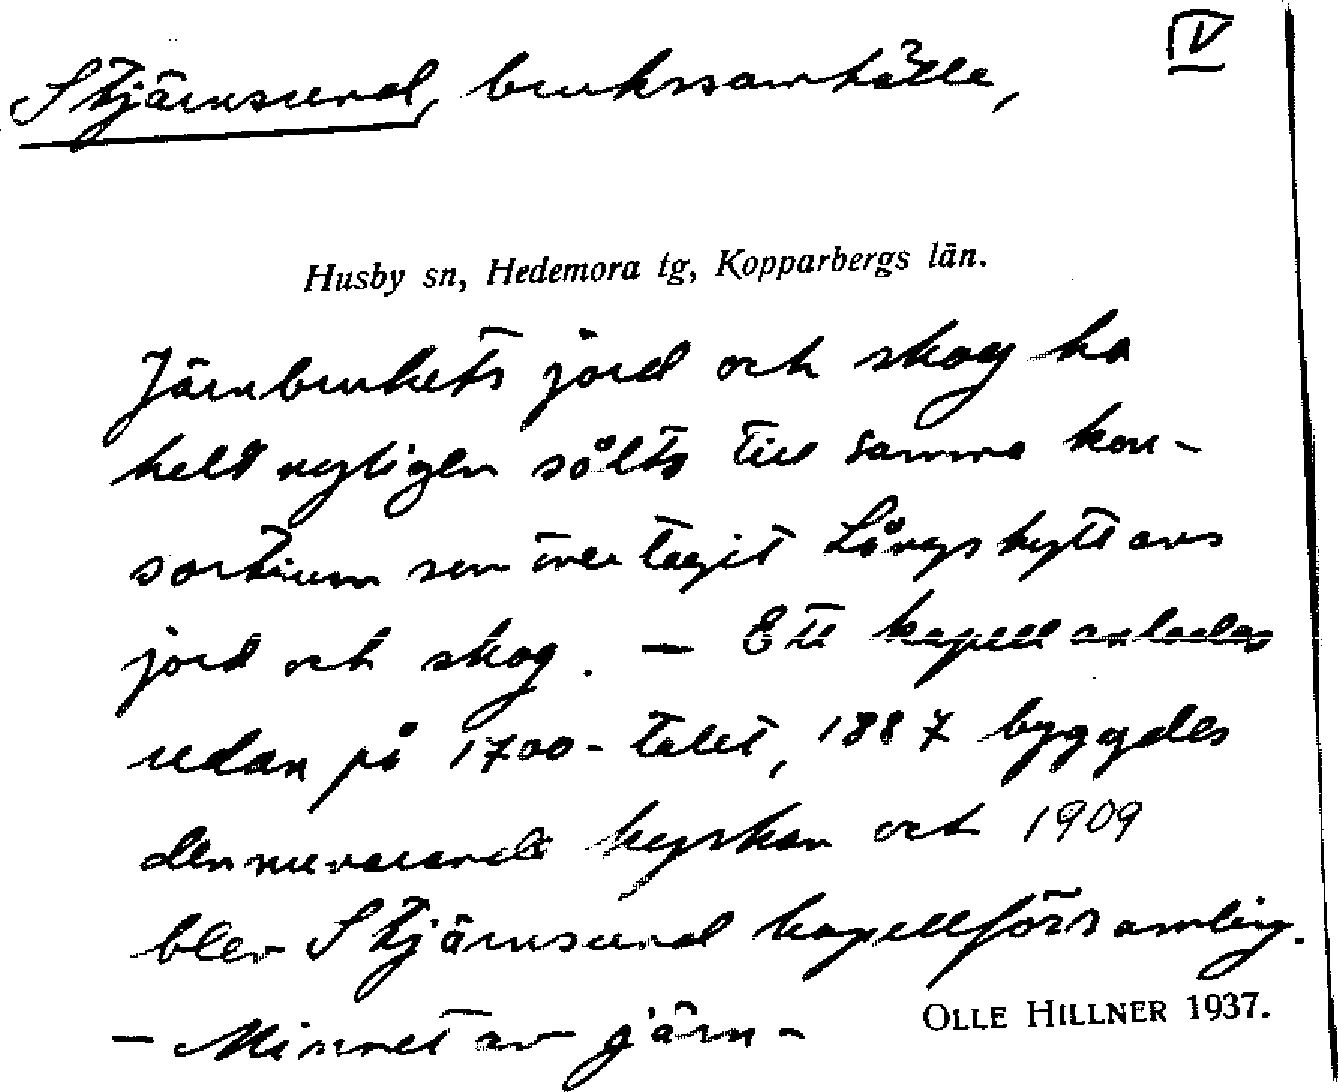 IV
Stjärnsund, brukssamhälle,
Husby sn, Hedemora tg, Kopparbergs län.
Järnbrukets jord och skog ha
helt nyligen sålts till samma kon-
sortium som övertagit Långshyttans
jord och skog. — Ett kapell anlades
redan på 1700-talet, 1887 byggdes
den nuvarande kyrkan och 1909
blev Stjärnsund kapellförsamling.
— Minnet av järn-
OLLE HILLNER 1937.